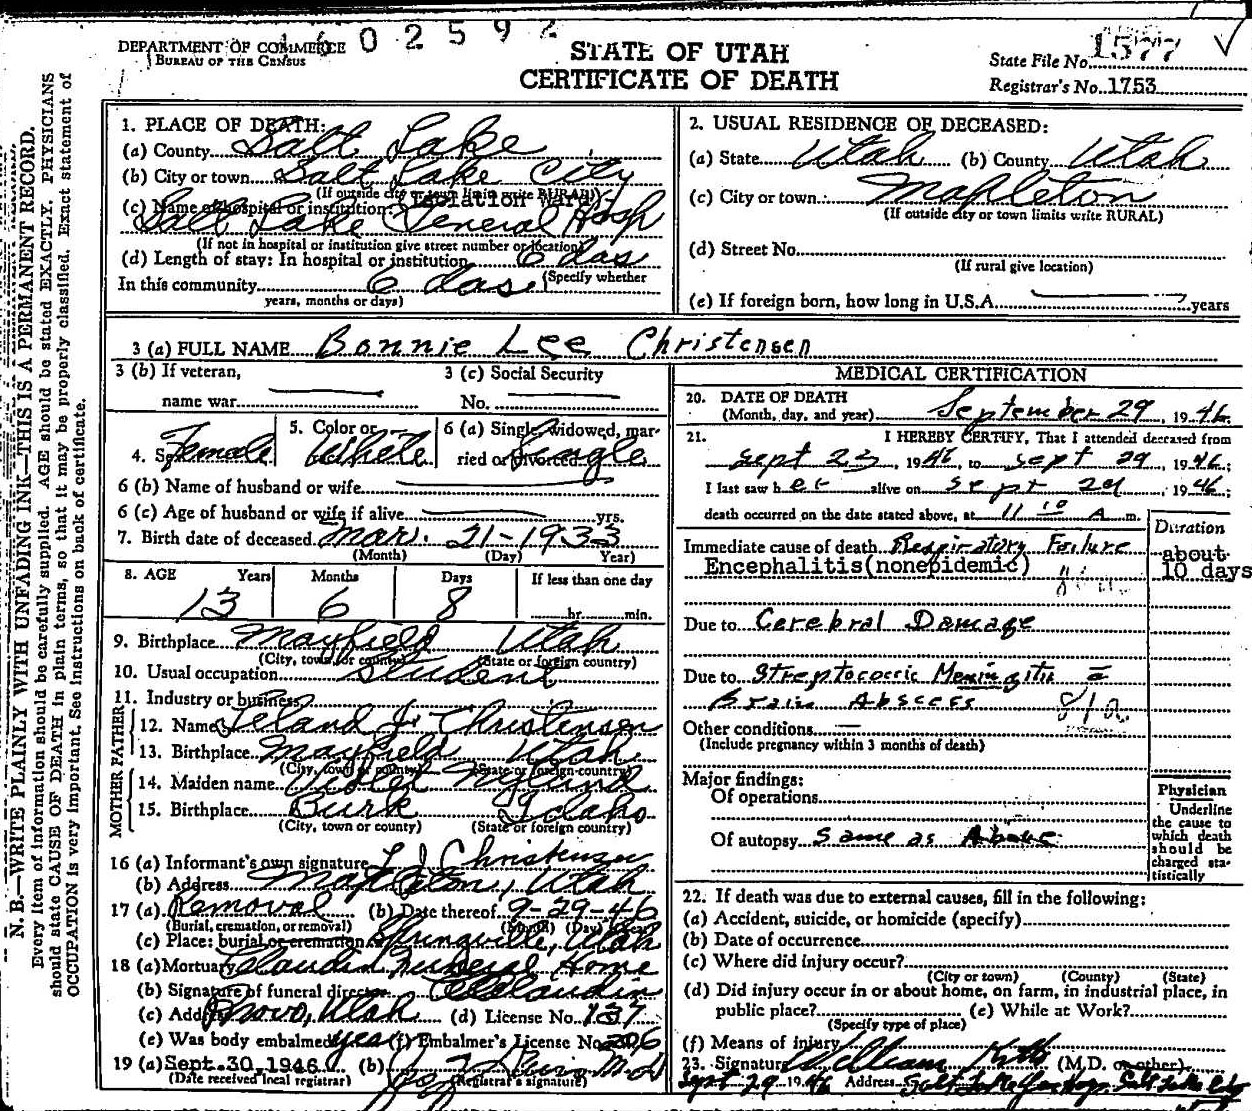 N. B.—WRITE PLAINLY WITH UNFADING INK—THIS IS A PERMANENT RECORD.
Every item of information should be carefully supplied. AGE should be stated EXACTLY. PHYSICIANS
should state CAUSE OF DEATH in plain terms, so that it may be properly classified. Exact statement of
OCCUPATION is very important. See instructions on back of certificate.
DEPARTMENT OF COMMERCE
BUREAU OF THE CENSUS
STATE OF UTAH
CERTIFICATE OF DEATH
State File No. 1577
Registrar's No. 1753
1. PLACE OF DEATH:
(a) County Salt Lake
(b) City or town Salt Lake City
(If outside city or town limits write RURAL)
(c) Name of hospital or institution: (Isolation Ward)
Salt Lake General Hosp
(If not in hospital or institution give street number or location)
(d) Length of stay: In hospital or institution 6 das
(Specify whether
In this community 6 das
years, months or days)
2. USUAL RESIDENCE OF DECEASED:
(a) State Utah (b) County Utah
(c) City or town Mapleton
(If outside city or town limits write RURAL)
(d) Street No.
(If rural give location)
(e) If foreign born, how long in U.S.A. years
3 (a) FULL NAME Bonnie Lee Christensen
3 (b) If veteran,
name war
3 (c) Social Security
No.
4. Sex Female
5. Color or White
6 (a) Single, widowed, mar-
ried or divorced Single
6 (b) Name of husband or wife
6 (c) Age of husband or wife if alive yrs.
7. Birth date of deceased Mar. 21-1933
(Month) (Day) Year)
8. AGE Years Months Days If less than one day
13 6 8 hr. min.
9. Birthplace Mayfield Utah
(City, town, or county) (State or foreign country)
10. Usual occupation Student
11. Industry or business
FATHER
12. Name Leland J. Christensen
13. Birthplace Mayfield Utah
(City, town or county) (State or foreign country)
MOTHER
14. Maiden name Violet Nylund
15. Birthplace Burk Idaho
(City, town or county) (State or foreign country)
16 (a) Informant's own signature L J Christensen
(b) Address Mapleton, Utah
17 (a) Removal (b) Date thereof 9-29-46
(Burial, cremation, or removal) (Month) (Day) (Year)
(c) Place: burial or cremation Springville, Utah
18 (a) Mortuary Claudin Funeral Home
(b) Signature of funeral director Claudin
(c) Address Provo, Utah (d) License No. 137
(e) Was body embalmed yes (f) Embalmer's License No. 206
19 (a) Sept. 30, 1946 (b)
(Date received local registrar) (Registrar's signature)
MEDICAL CERTIFICATION
20. DATE OF DEATH
(Month, day, and year) September 29, 1946
21. I HEREBY CERTIFY, That I attended deceased from
Sept 23, 1946, to Sept 29, 1946;
I last saw her alive on Sept 29, 1946;
death occurred on the date stated above, at 11 10 A m.
Duration
Immediate cause of death Respiratory Failure
Encephalitis (nonepidemic)
about
10 days
Due to Cerebral Damage
Due to Streptococcic Meningitis
Brain Abscess
Other conditions
(Include pregnancy within 3 months of death)
Major findings:
Of operations
Of autopsy Same as Above
Physician
Underline
the cause to
which death
should be
charged sta-
tistically
22. If death was due to external causes, fill in the following:
(a) Accident, suicide, or homicide (specify)
(b) Date of occurrence
(c) Where did injury occur?
(City or town) (County) (State)
(d) Did injury occur in or about home, on farm, in industrial place, in
public place? (e) While at Work?
(Specify type of place)
(f) Means of injury
23. Signature William (M.D. or other)
Sept 29 1946 Address Salt Lake Gen Hosp. Salt Lake City